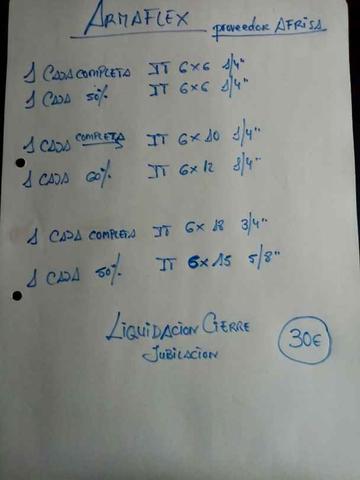 ARMAFLEX proveedor AFRISA
1 CAJA COMPLETA IT 6x6 1/4"
1 CAJA 50% IT 6x6 1/4"
1 CAJA COMPLETA IT 6x10 1/4"
1 CAJA 60% IT 6x12 1/4"
1 CAJA COMPLETA IT 6x18 3/4"
1 CAJA 50% IT 6x15 5/8"
LIQUIDACION CIERRE
JUBILACION
30€